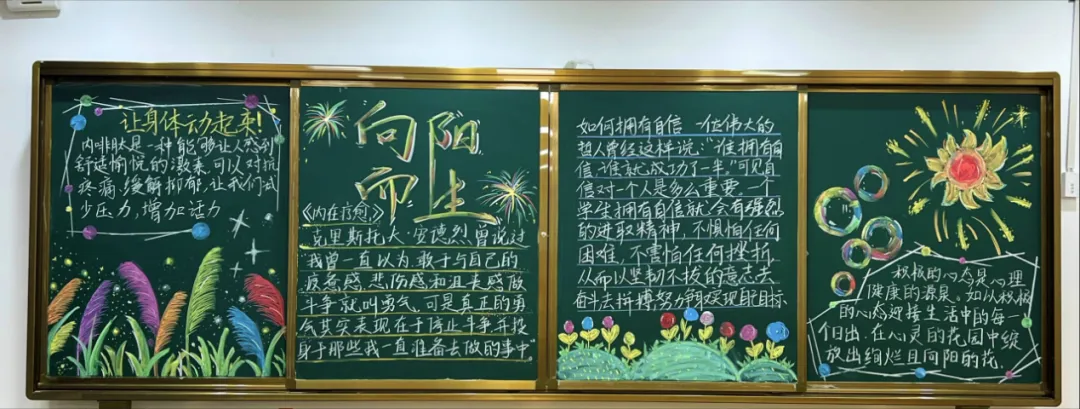 让身体动起来！
内啡肽是一种能够让人感到
舒适愉悦的激素，可以对抗
疼痛、缓解抑郁，让我们减
少压力，增加活力
向阳
而生
《内在疗愈》
克里斯托夫·安德烈曾说过
"我曾一直以为，敢于与自己的
疲惫感、悲伤感和沮丧感做
斗争就叫勇气，可是真正的勇
气其实表现在于停止斗争并投
身于那些我一直准备去做的事中"
如何拥有自信 一位伟大的
哲人曾经这样说："谁拥有自
信，谁就成功了一半"可见自
信对一个人是多么重要，一个
学生拥有自信就会有强烈
的进取精神，不惧怕任何
困难，不害怕任何挫折，
从而以坚韧不拔的意志去
奋斗去拼搏努力实现目标
积极的心态是心理
健康的源泉。如以积极
的心态迎接生活中的每一
个日出，在心灵的花园中绽
放出绚烂且向阳的花.